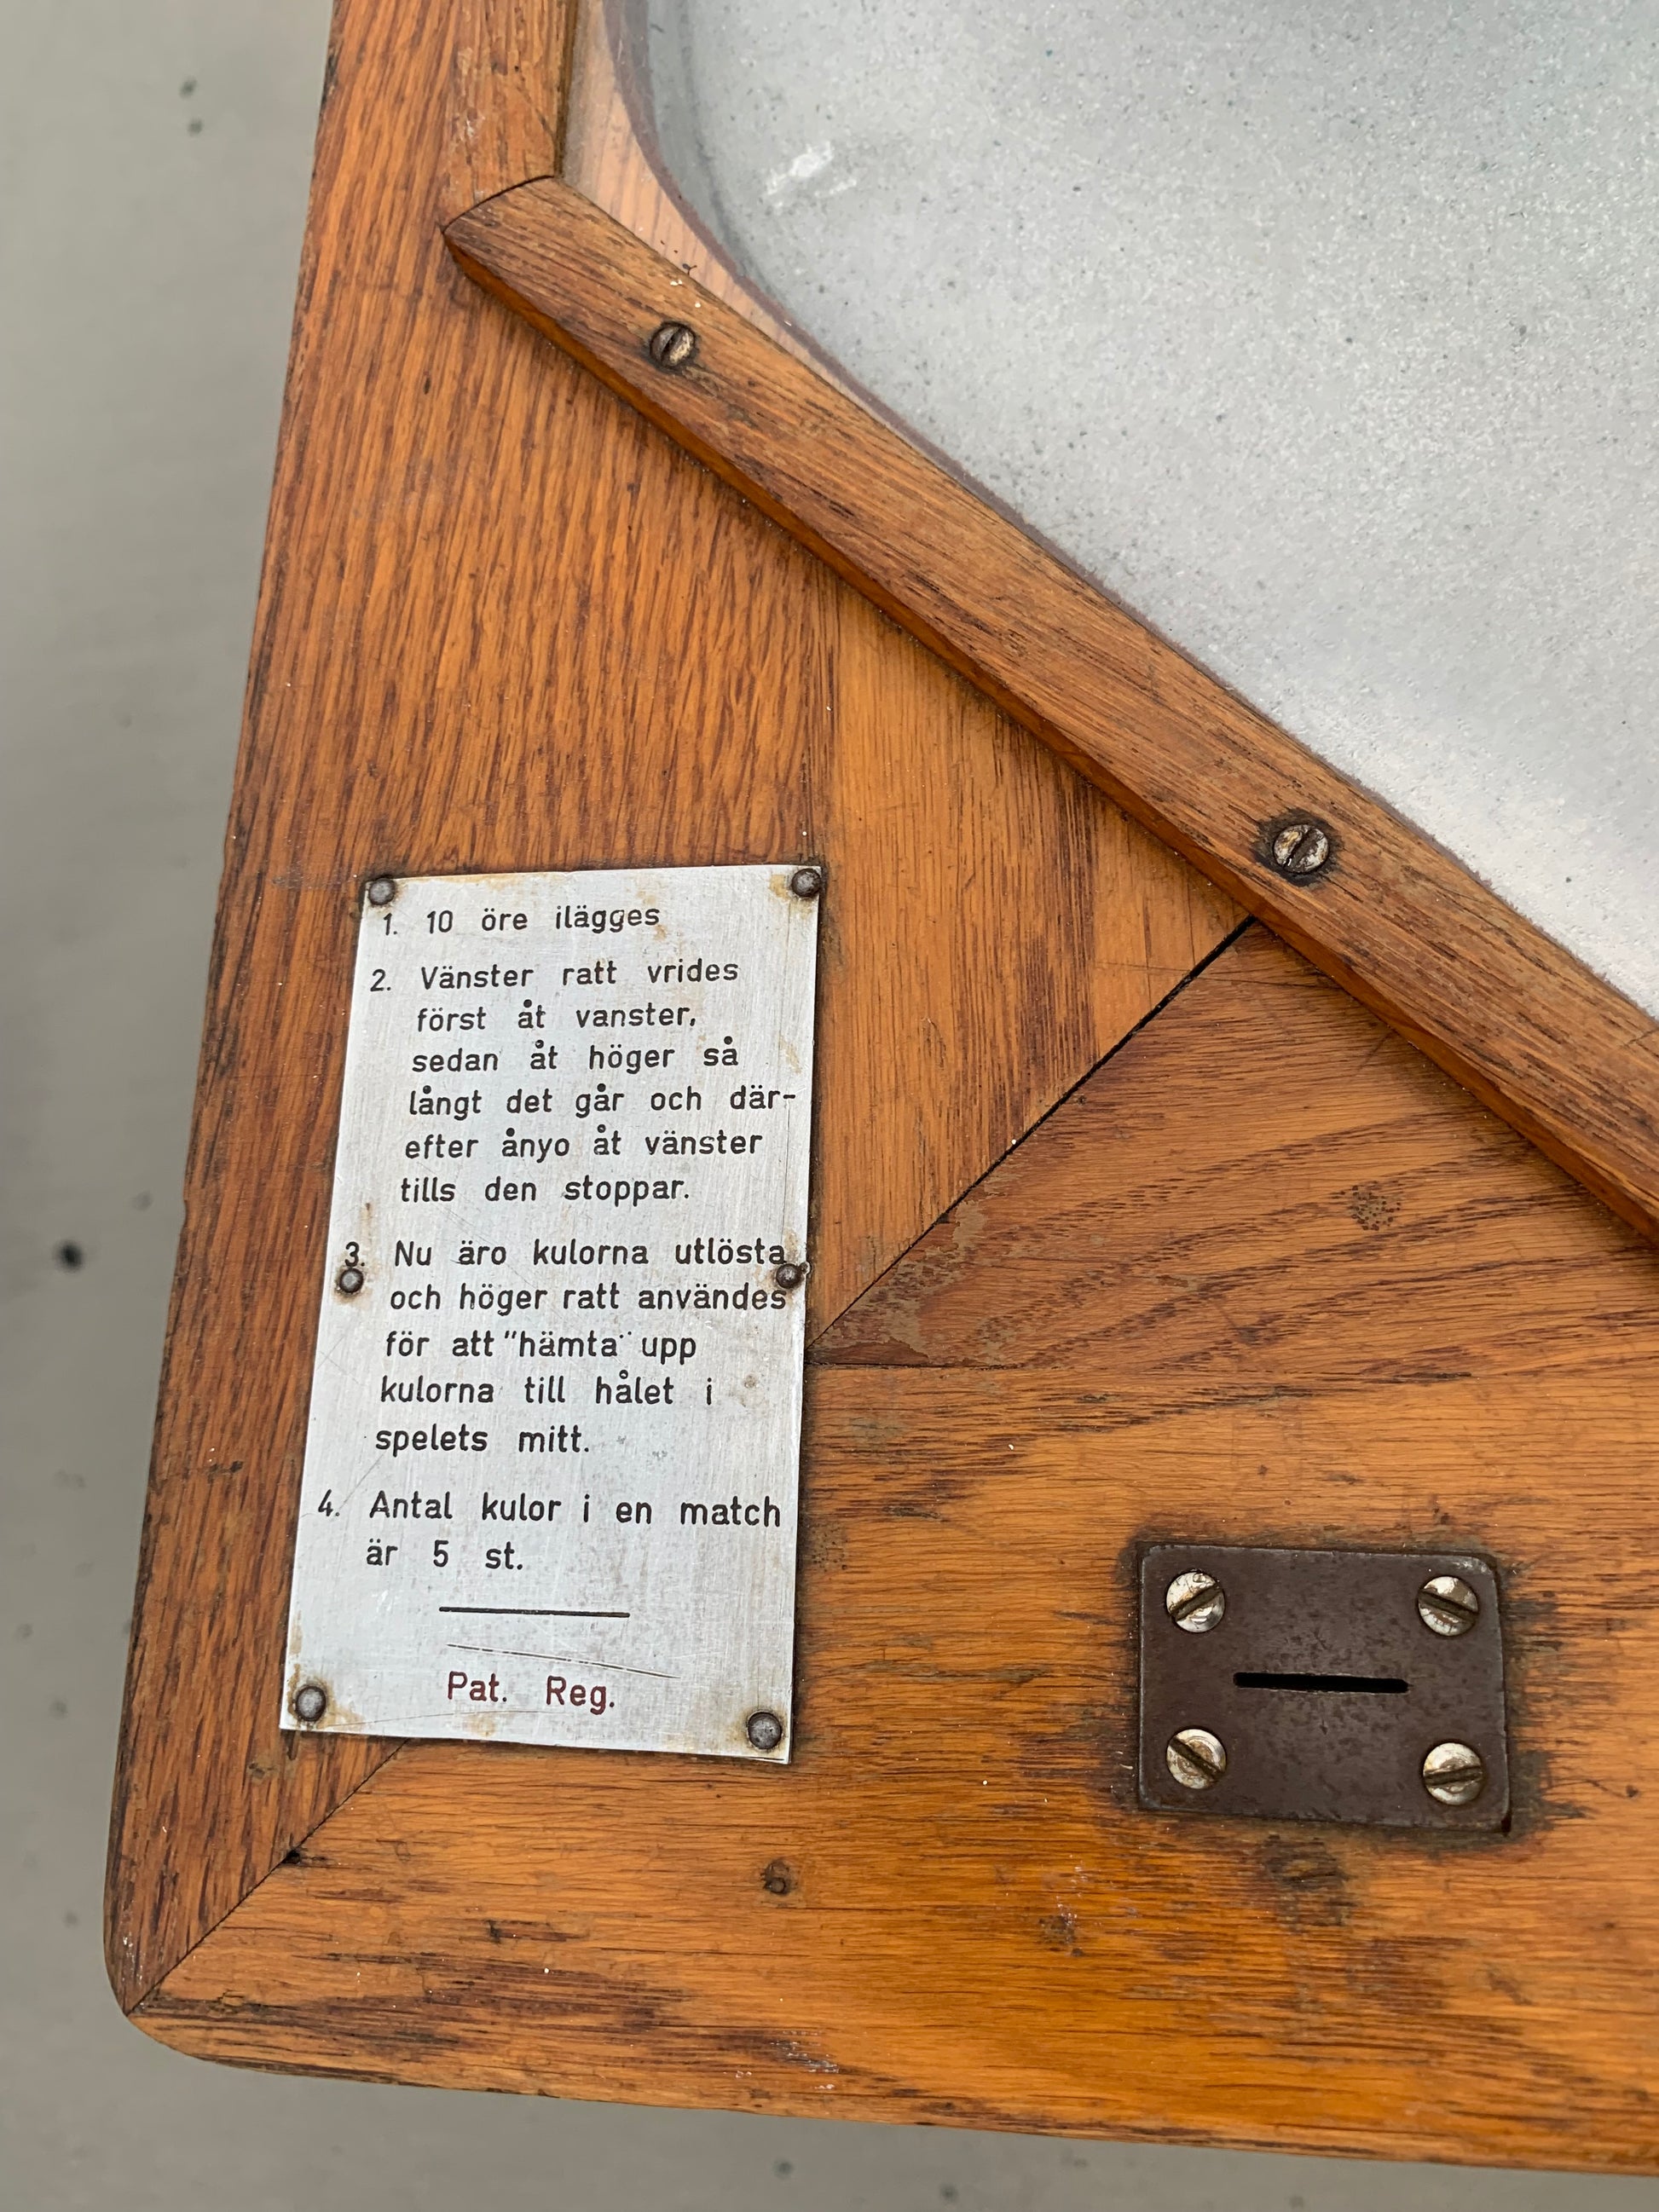 1. 10 öre ilägges
2. Vänster ratt vrides
först åt vanster,
sedan åt höger så
långt det går och där-
efter ånyo åt vänster
tills den stoppar.
3. Nu äro kulorna utlösta
och höger ratt användes
för att "hämta" upp
kulorna till hålet i
spelets mitt.
4. Antal kulor i en match
är 5 st.
Pat. Reg.